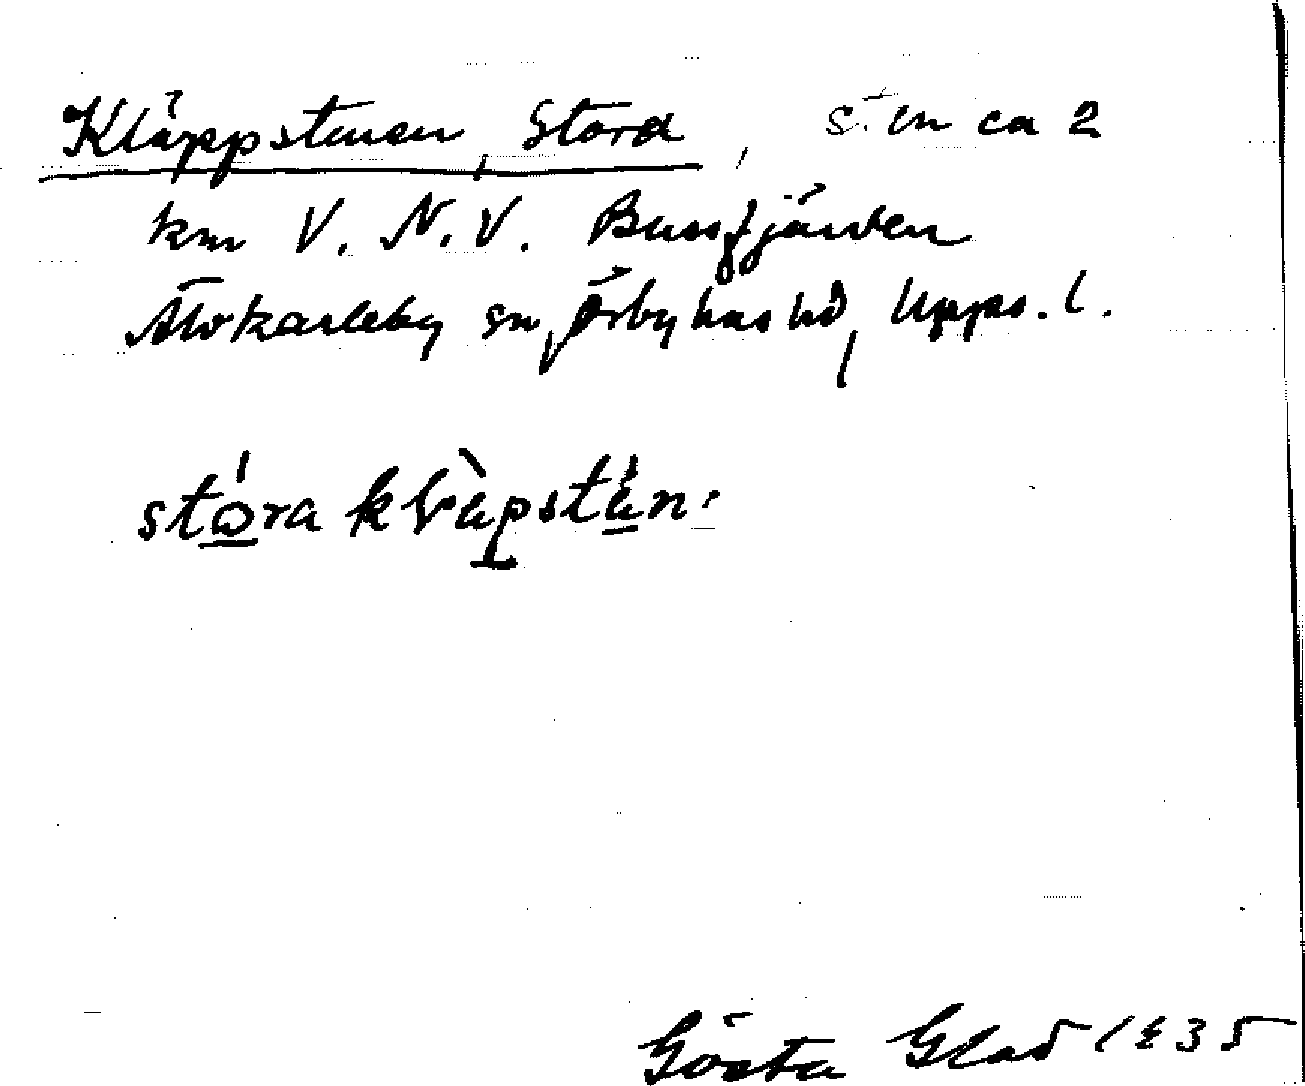 Kläppstenen, Stora, sten ca 2
km V.N.V. Bussfjärden
Älvkarleby sn, Örbyhus hd, Upps. l.
stora kläpstän.
Gösta Glad 1935